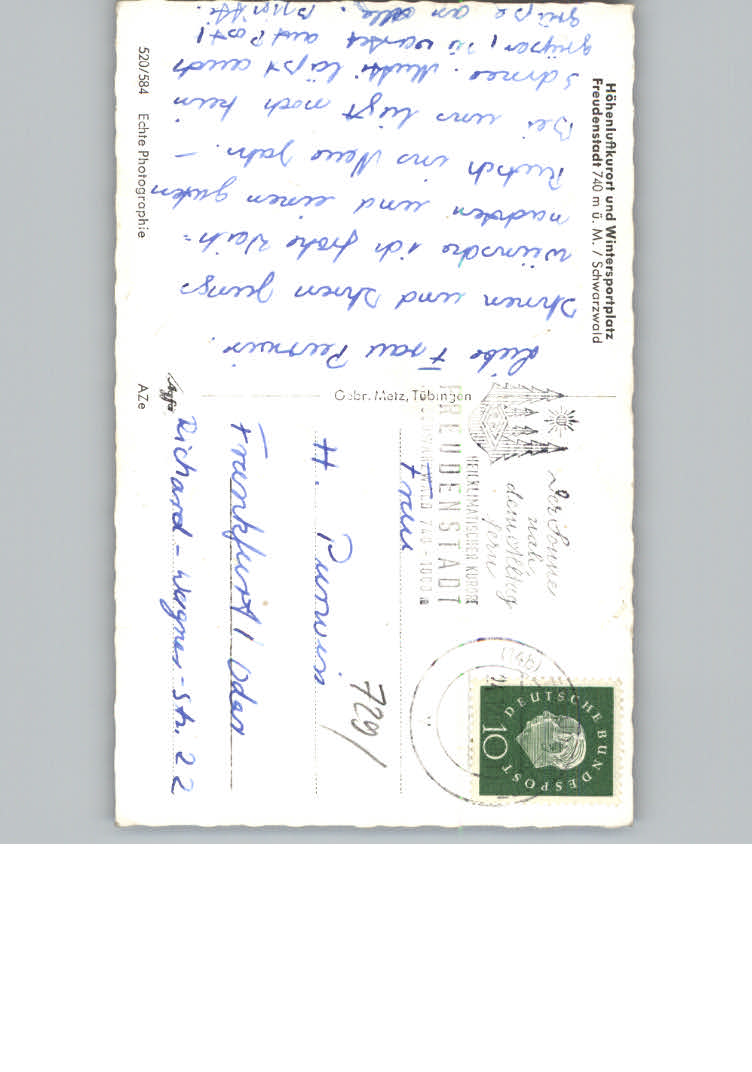 Höhenluftkurort und Wintersportplatz
Freudenstadt 740 m ü. M. / Schwarzwald
Liebe Frau Purwin.
Ihnen und Ihren Jungs
wünsche ich frohe Weih=
nachten und einen guten
Rutsch ins Neue Jahr. –
Bei uns liegt noch kein
Schnee. Mutti läßt auch
grüßen, sie wartet auf Post!
Grüße an alle. Brigitte.
520/584 Echte Photographie
AZe
Gebr. Metz, Tübingen
Der Sonne
nahe
dem Alltag
fern
HEILKLIMATISCHER KURORT
FREUDENSTADT
SCHWARZWALD 740-1000 m
(14b)
24
DEUTSCHE BUNDESPOST
10
Frau
H. Purwin
729/
Frankfurt / Oder
Richard-Wagner-Str. 22